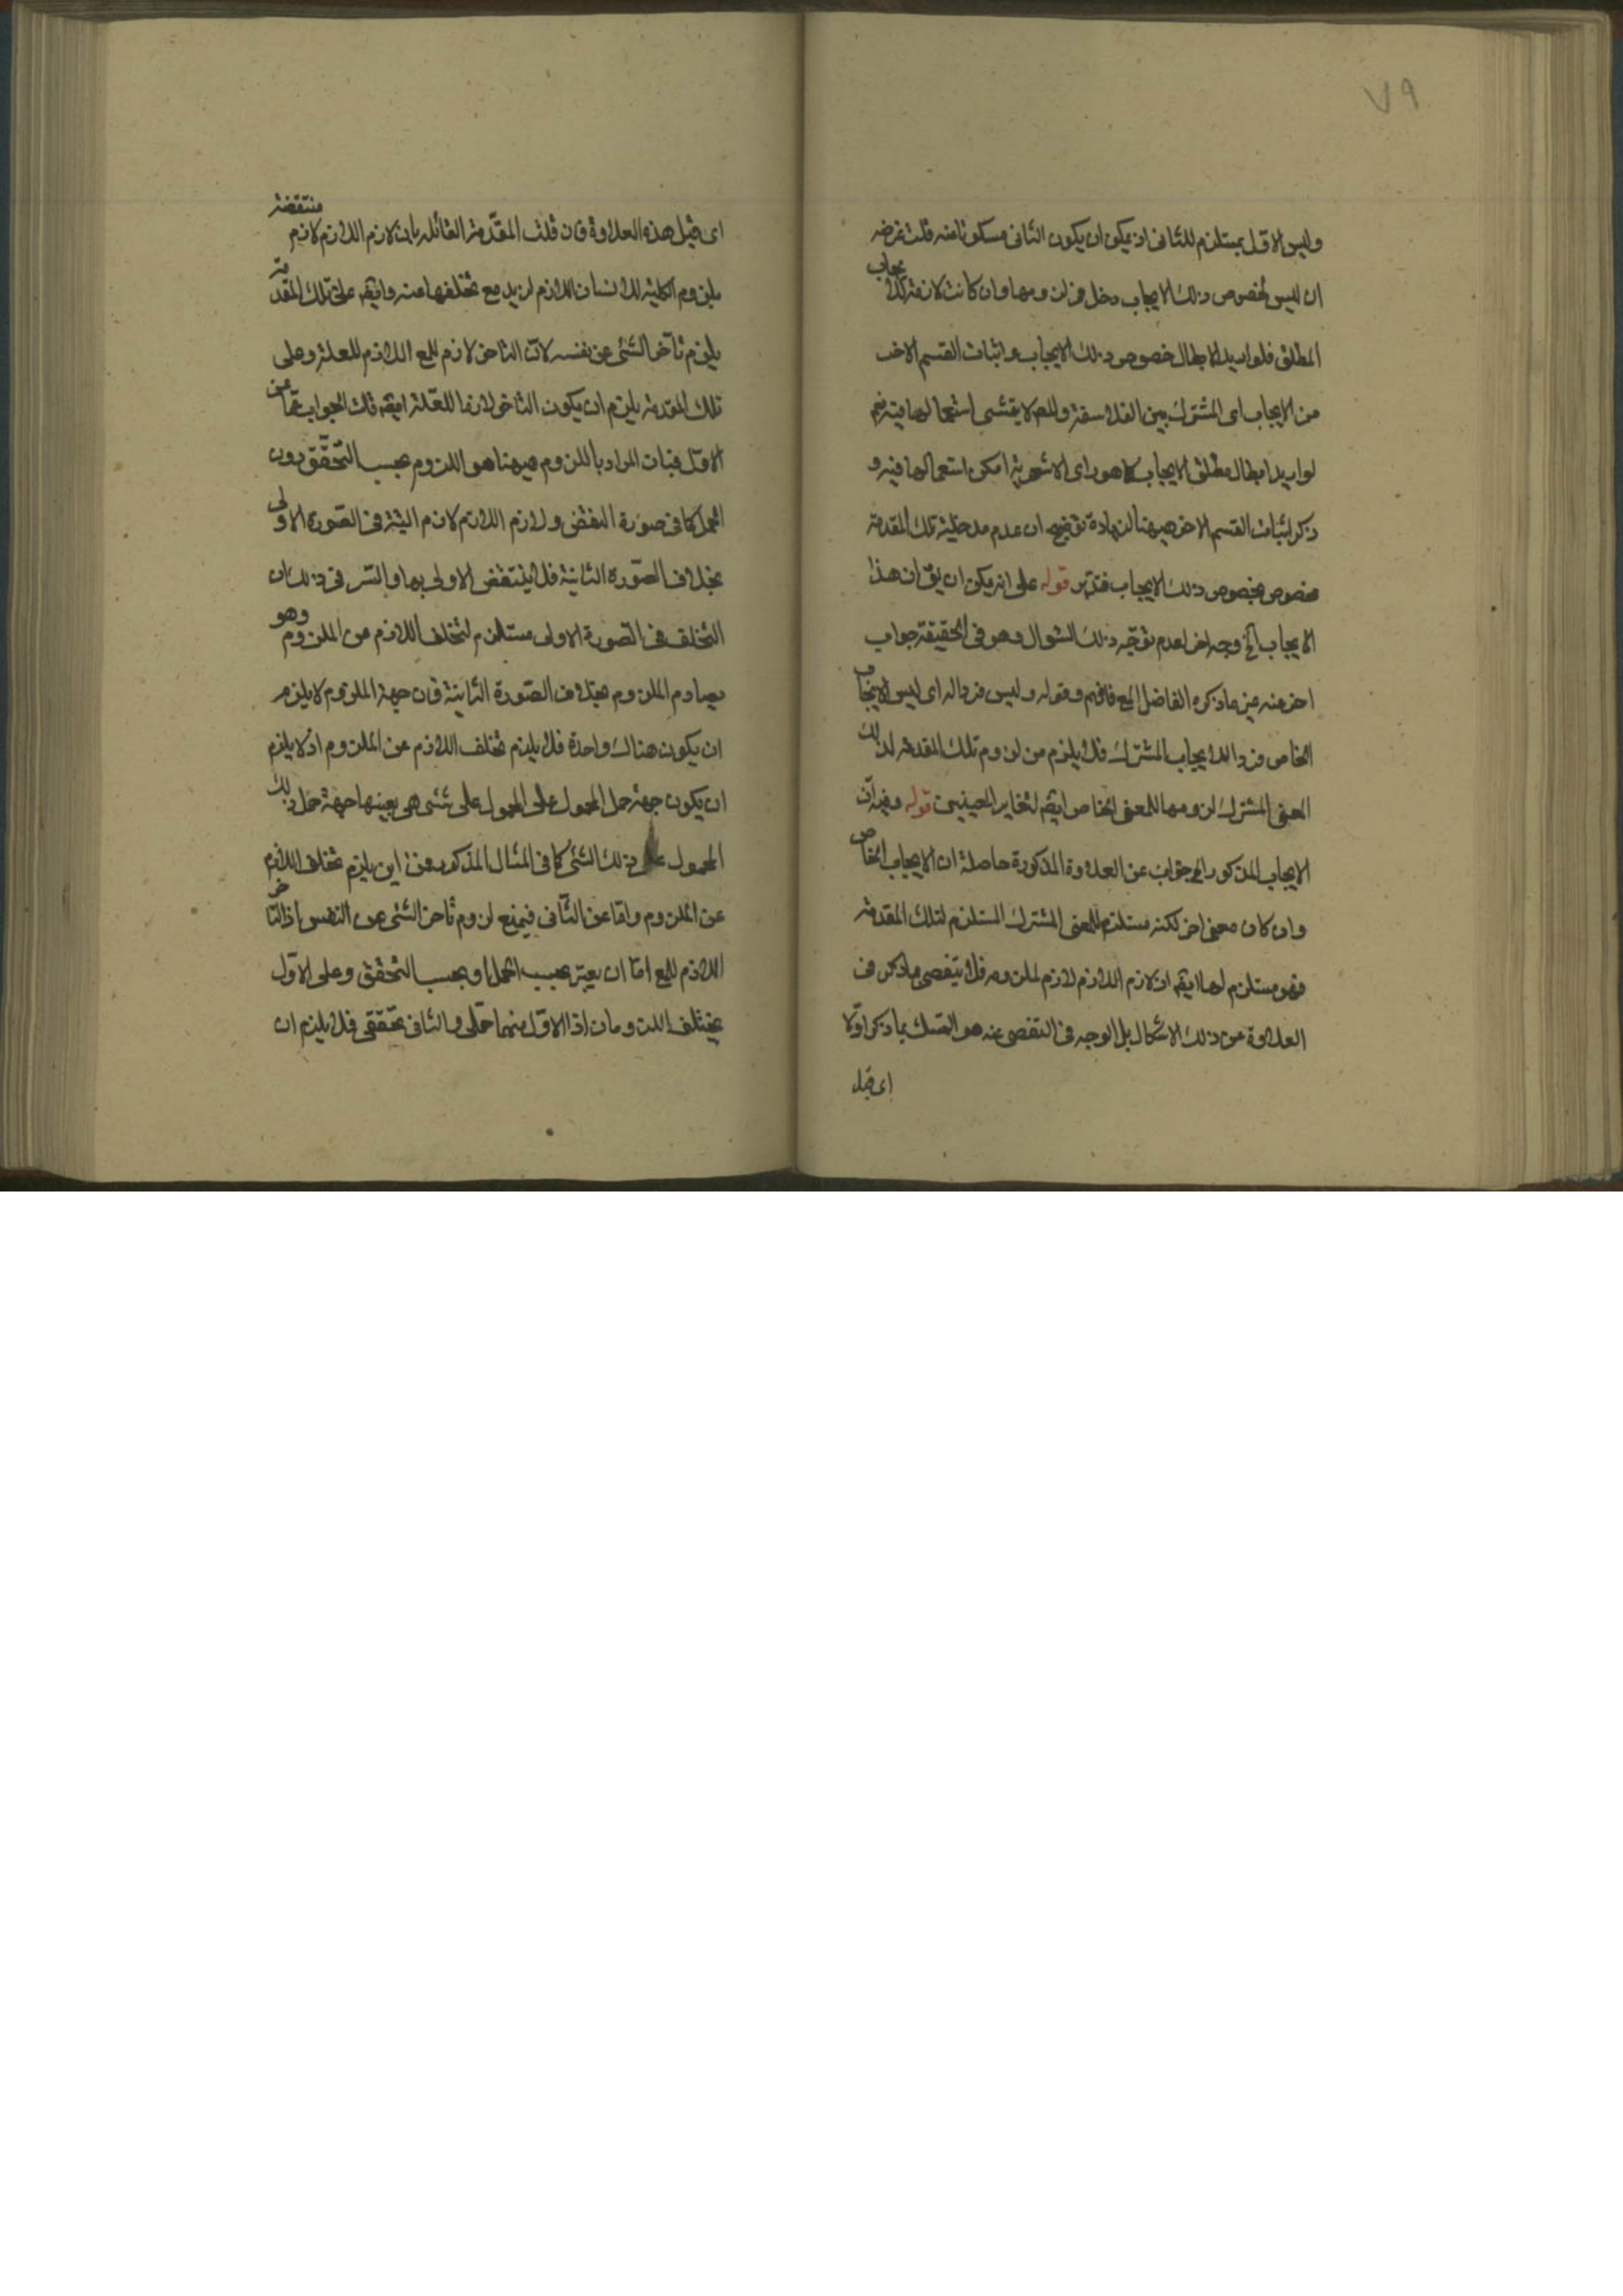 ٧٩
وليس الاول بمستلزم للثانى اذ يمكن ان يكون الثانى مسكوتا عنه قلت غرضه
ان ليس لخصوص ذلك الايجاب دخل فى لزومها وان كانت لازمة للايجاب
المطلق فلو اريد ابطال خصوص ذلك الايجاب واثبات القسم الاخر
من الايجاب اى المشترك بين الفلاسفة والمص لا يتمشى استعمالها فيه نعم
لو اريد ابطال مطلق الايجاب كما هو راى الاشعرية امكن استعمالها فيه و
ذكر اثبات القسم الاخر ههنا لزيادة توضيح ان عدم مدخلية تلك المقدمة
مخصوص بخصوص ذلك الايجاب فتدبر قوله على انه يمكن ان يق ان هذا
الايجاب الخ وجه اخر لعدم توجه ذلك السؤال وهو فى الحقيقة جواب
اخر عنه غير ما ذكره الفاضل المع فافهم وقوله وليس فردا له اى ليس الايجاب
الخاص فردا للايجاب المشترك فلا يلزم من لزوم تلك المقدمة لذلك
المعنى المشترك لزومها للمعنى الخاص ايضا لتغاير المعنيين قوله وفيه ان
الايجاب المذكور الخ جواب عن العلاوة المذكورة حاصله ان الايجاب الخاص
وان كان معنى اخر لكنه مستلزم للمعنى المشترك المستلزم لتلك المقدمة
فهو مستلزم لها ايضا اذ لازم اللازم لازم لملزومه فلا يتفصى بما ذكر فى
العلاوة عن ذلك الاشكال بل الوجه فى التفصى عنه هو التمسك بما ذكر اولا
اى قبل
اى قبل هذه العلاوة فان قلت المقدمة القائله بان لازم اللازم لازم منتقضة
بلزوم الكلية للانسان اللازم لزيد مع تخلفها عنه وايضا على تلك المقدمة
يلزم تاخر الشئ عن نفسه لان التاخر لازم للمع اللازم للعلة وعلى
تلك المقدمة يلزم ان يكون التاخر لازما للعلة ايضا قلت الجواب اما عن
الاول فبان المراد باللزوم ههنا هو اللزوم بحسب التحقق دون
الحمل كما فى صورة النقض ولازم اللازم لازم البتة فى الصورة الاولى
بخلاف الصورة الثانية فلا ينتقض الاولى بها والسر فى ذلك ان
التخلف فى الصورة الاولى مستلزم لتخلف اللازم من الملزوم وهو
يصادم الملزوم بخلاف الصورة الثانية فان جهة الملزوم لا يلزم
ان يكون هناك واحدة فلا يلزم تخلف اللازم عن الملزوم اذ لا يلزم
ان يكون جهة حمل المحمول على المحمول على شئ هى بعينها جهة حمل ذلك
المحمول على ذلك الشئ كما فى المثال المذكور فمن اين يلزم تخلف اللازم
عن الملزوم واما عن الثانى فيمنع لزوم تاخر الشئ عن النفس اذ التاخر
اللازم للمع اما ان يعتبر بحسب الحمل او بحسب التحقق وعلى الاول
يختلف اللزومان اذ الاول منهما حملى والثانى تحققى فلا يلزم ان